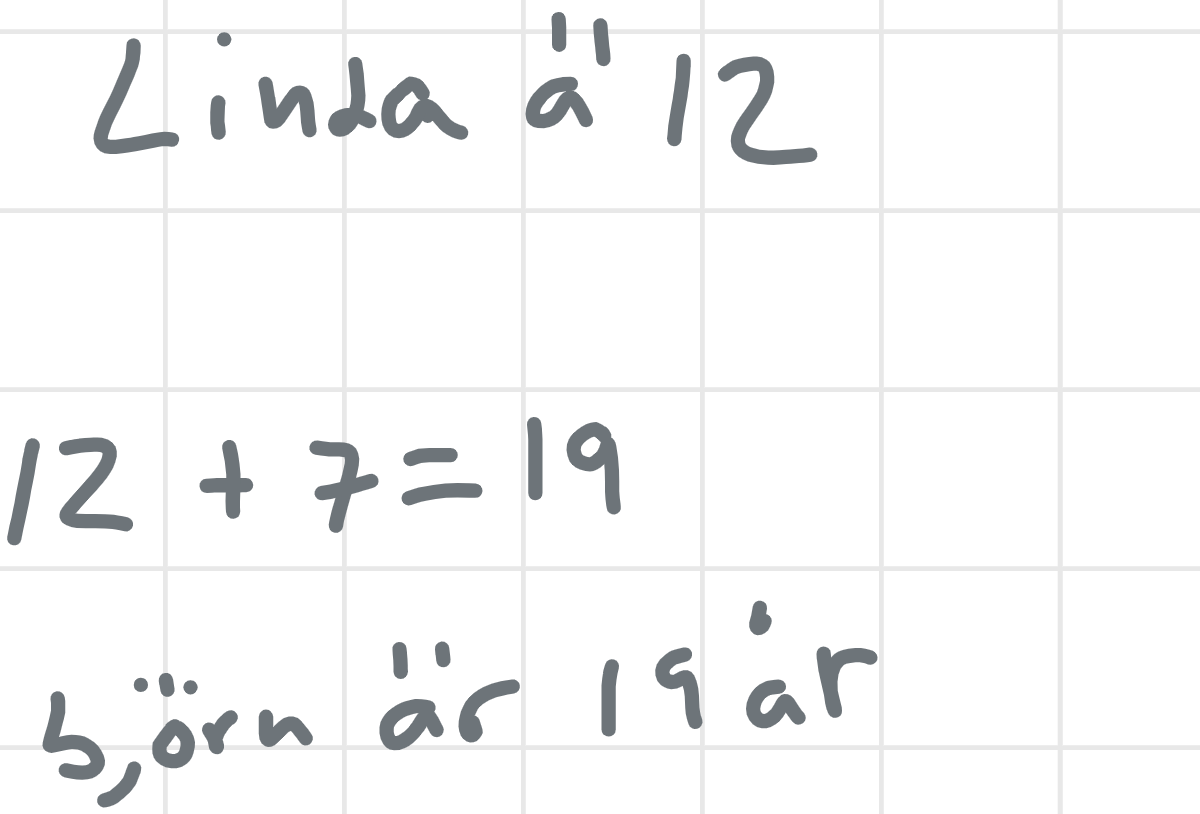 Linda ä 12
12 + 7 = 19
björn är 19 år